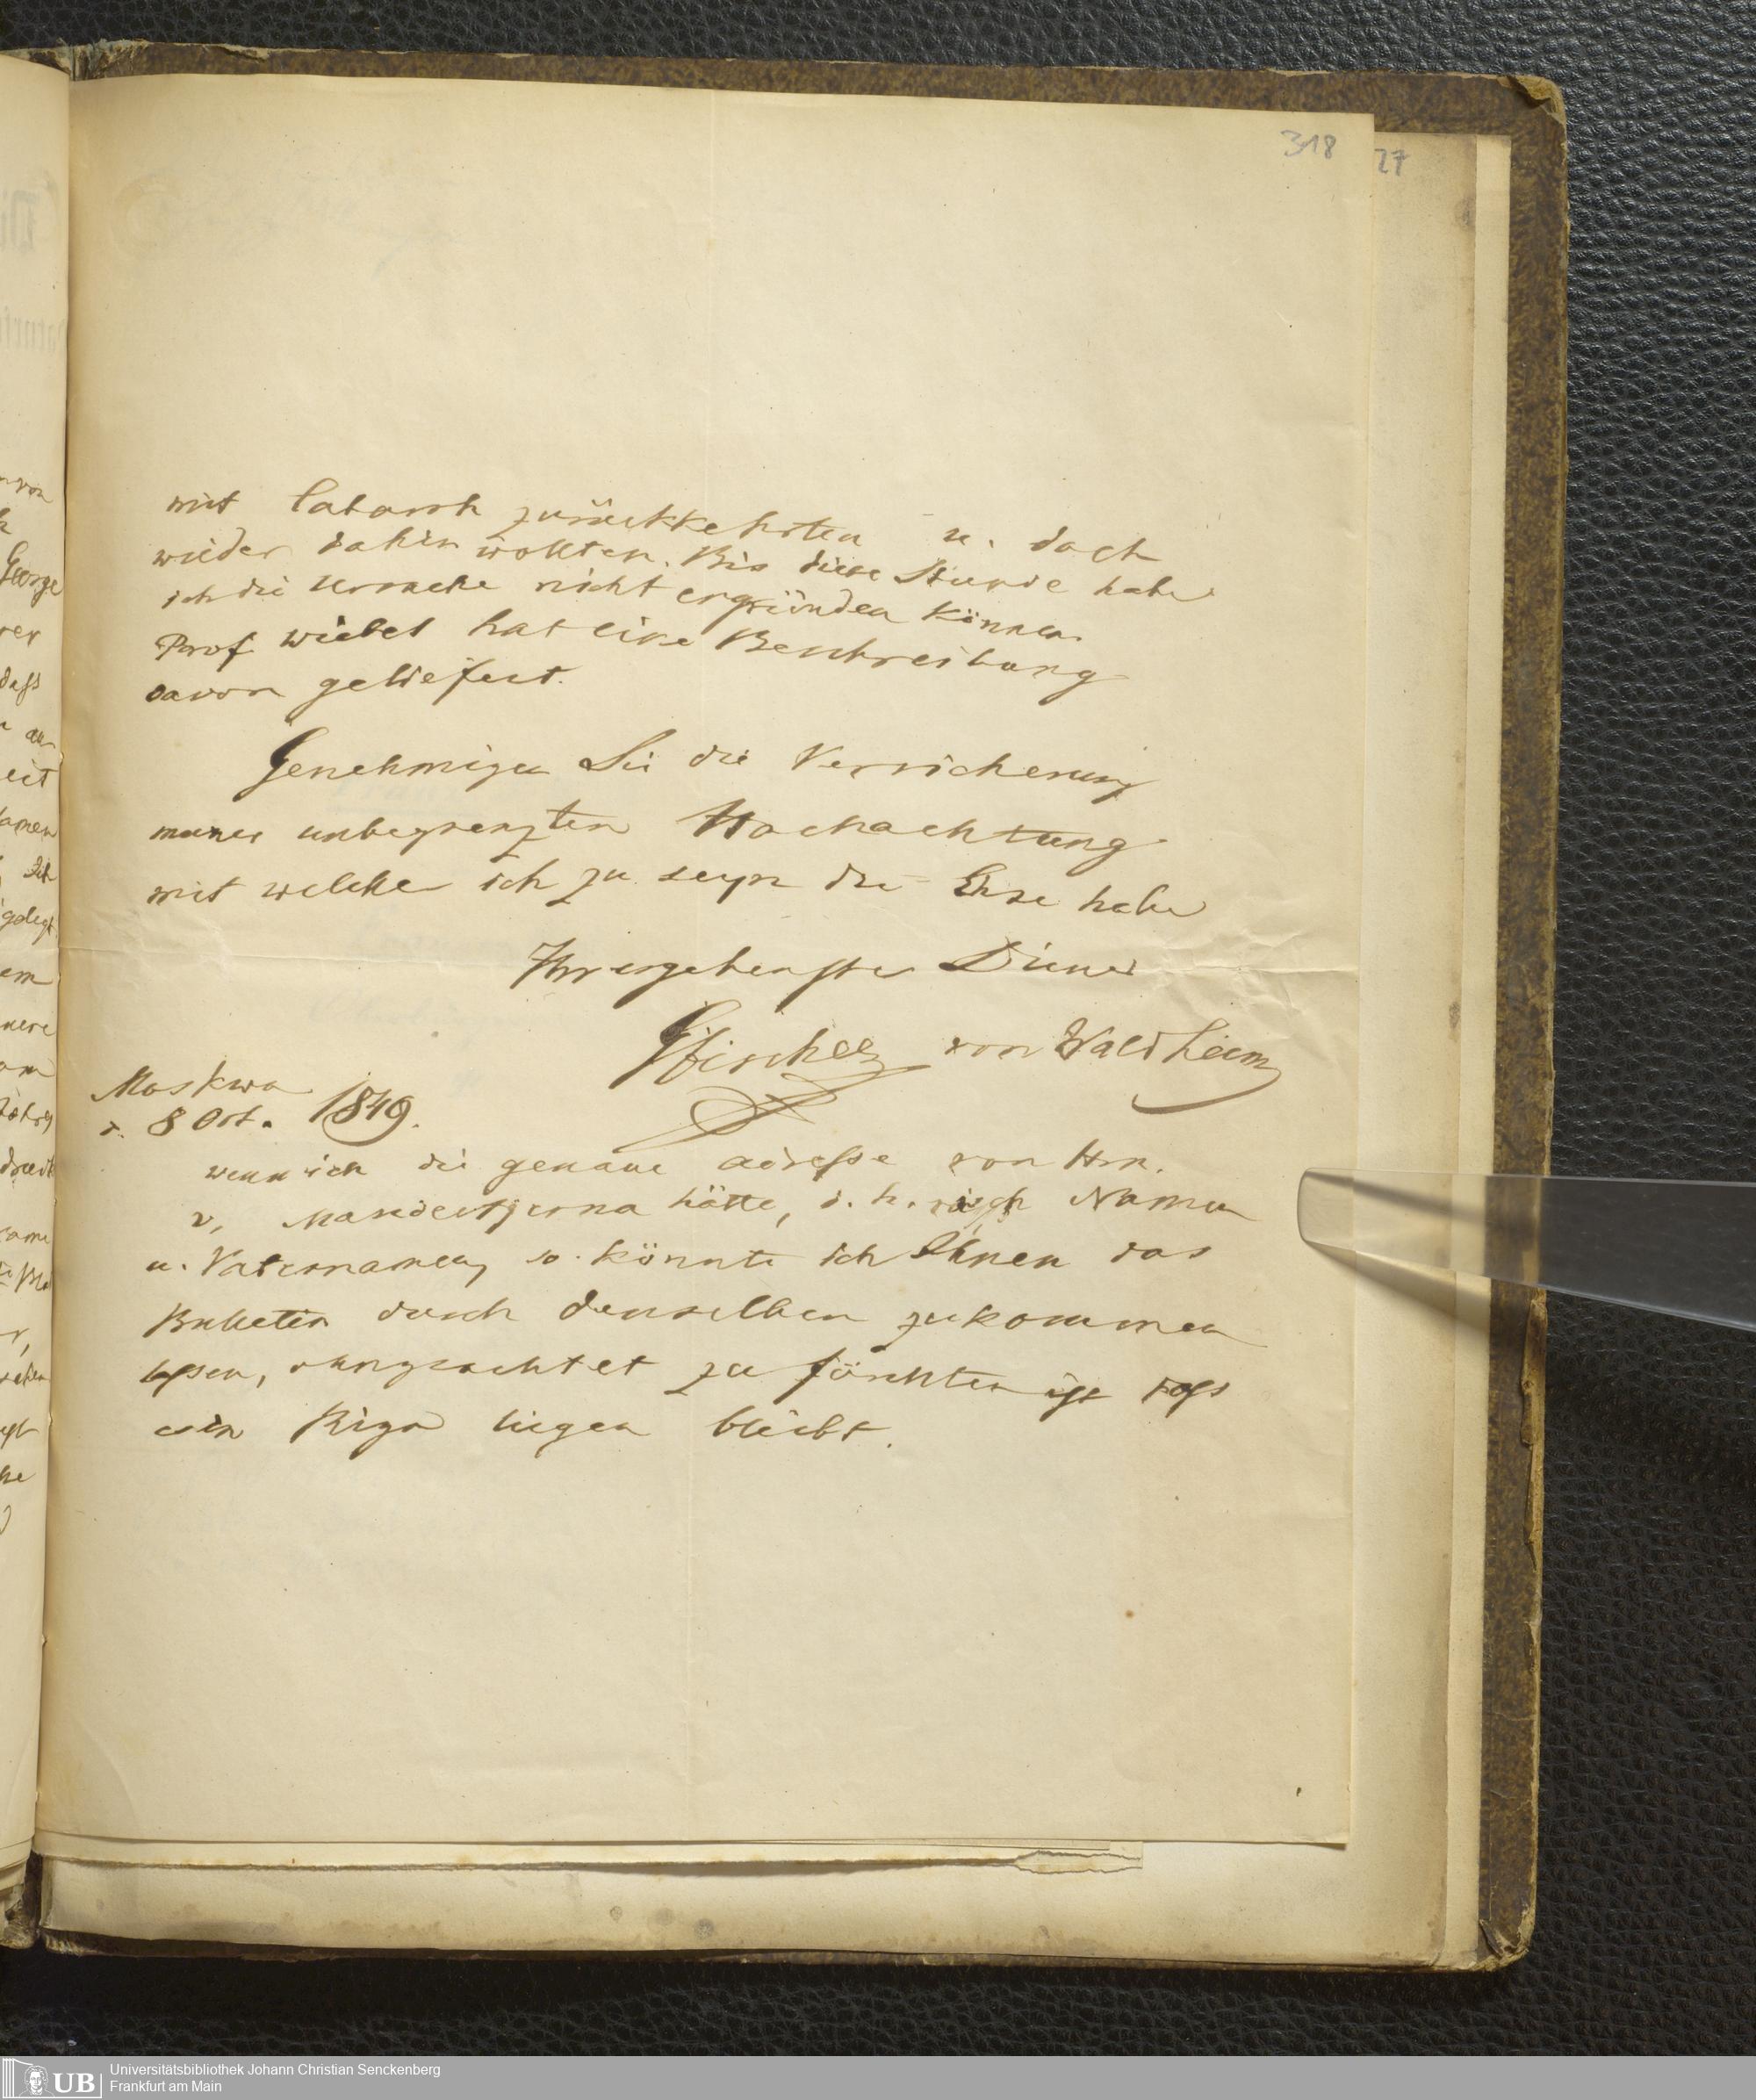 318
27
mit Catarrh zurückkehrten u. doch
wieder dahin wollten. Bis diese Stunde habe
ich die Ursache nicht ergründen können.
Prof. Wiebel hat eine Beschreibung
davon geliefert.
Genehmigen Sie die Versicherung
meiner unbegrenzten Hochachtung
mit welcher ich zu seyn die Ehre habe
Ihr ergebenster Diener
GFischer von Waldheim
Moskwa
d. 8 Oct. 1849.
wenn ich die genaue adresse von Hrn.
v. Manderstjerna hätte, d. h. Namen
u. Vaternamen, so könnte ich Ihnen das
Bulletin durch denselben zukommen
lassen, ohngeachtet zu förchten ist dass
es in Riga liegen bleibt.
von
George
dass
eit
gelegt
UB
Universitätsbibliothek Johann Christian Senckenberg
Frankfurt am Main